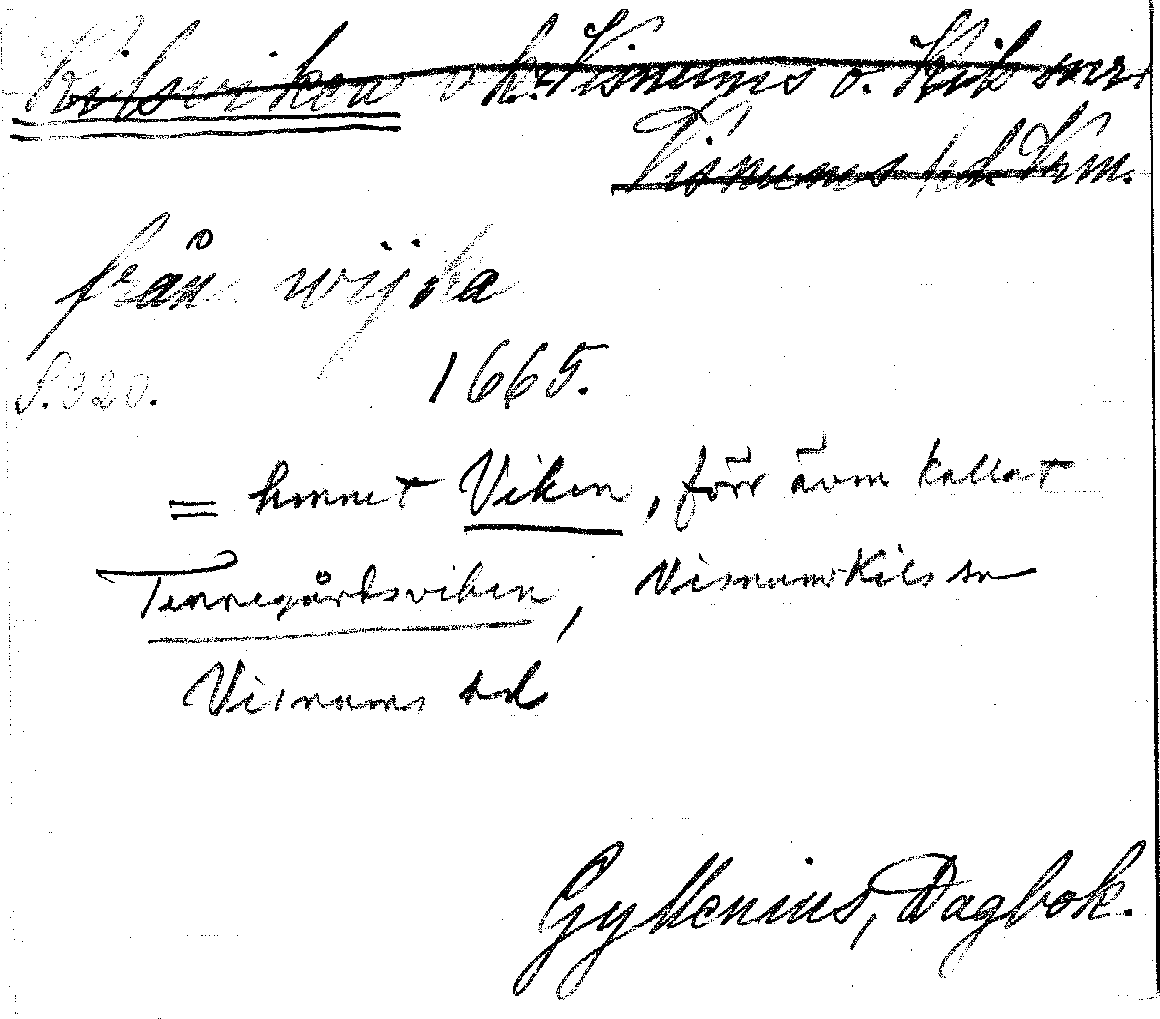 Kilsviken o k. Visnums o. Kils snr.
Visnums hd. Vrm.
från wijka
S. 320. 1665.
= hmnet Viken, förr även kallat
Tennegårdsviken, Visnums Kils sn
Visnums hd
Gyllenius, Dagbok.